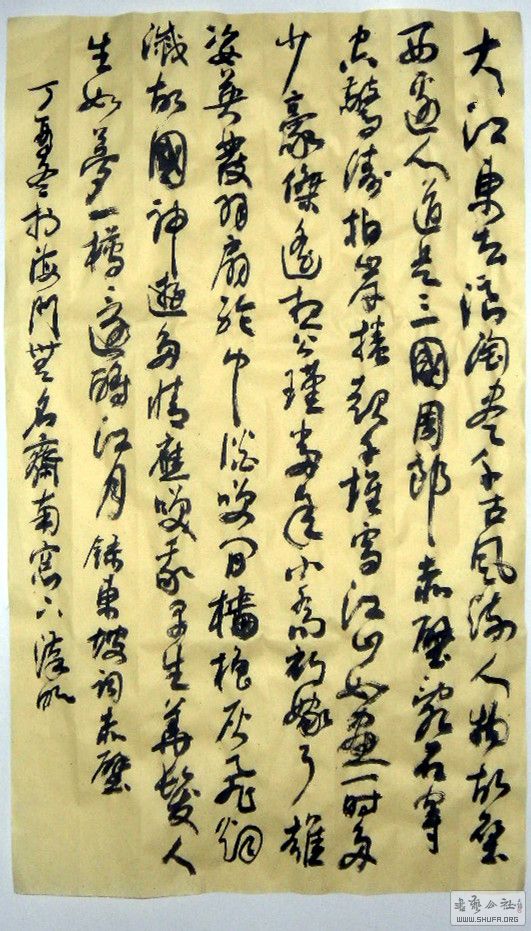 大江东去浪淘尽千古风流人物故壘
西邊人道是三國周郎赤壁亂石穿
空驚濤拍岸捲起千堆雪江山如畫一时多
少豪傑遙想公瑾當年小喬初嫁了雄
姿英發羽扇綸巾談笑間檣櫓灰飛烟
滅故國神遊多情應笑我早生華髮人
生如夢一樽還酹江月 錄東坡詞赤壁
丁酉冬於海門無名齋南窓下
WWW.SHUFA.ORG